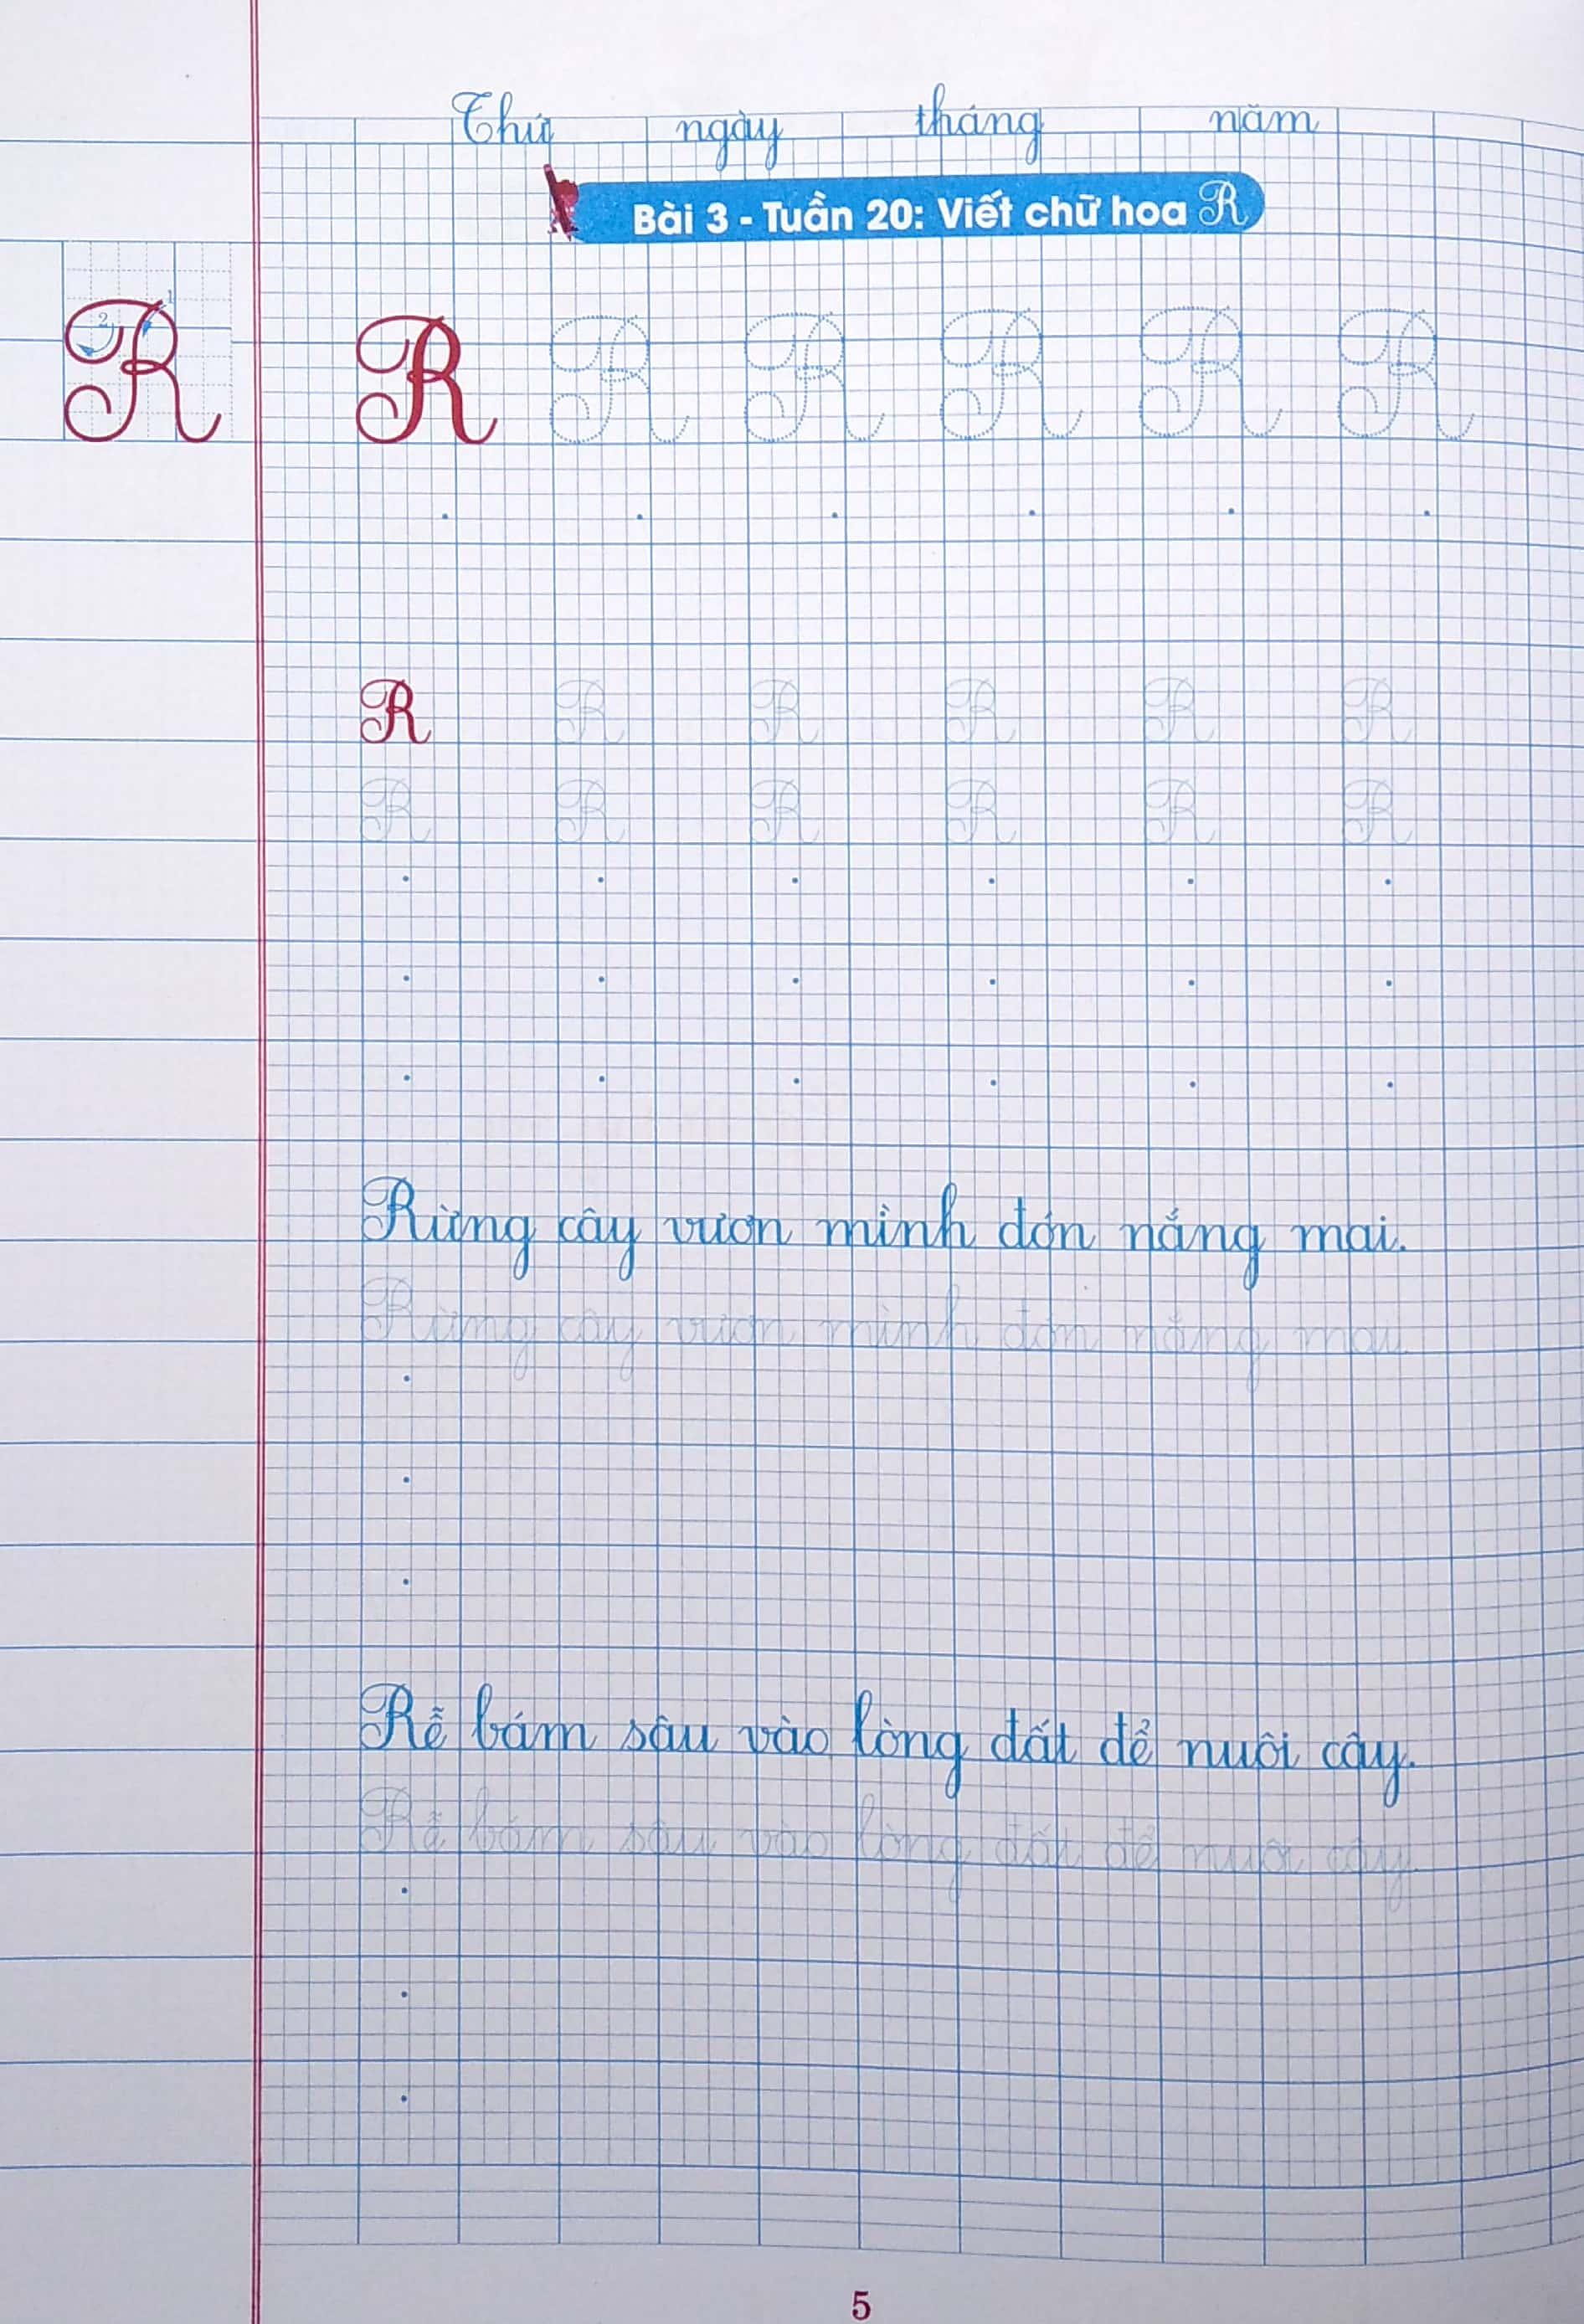 Thứ ngày tháng năm
Bài 3 - Tuần 20: Viết chữ hoa R
1
2
R
R R R R R R
R R R R R R
R R R R R R
Rừng cây vươn mình đón nắng mai.
Rừng cây vươn mình đón nắng mai.
Rễ bám sâu vào lòng đất để nuôi cây.
Rễ bám sâu vào lòng đất để nuôi cây.
5